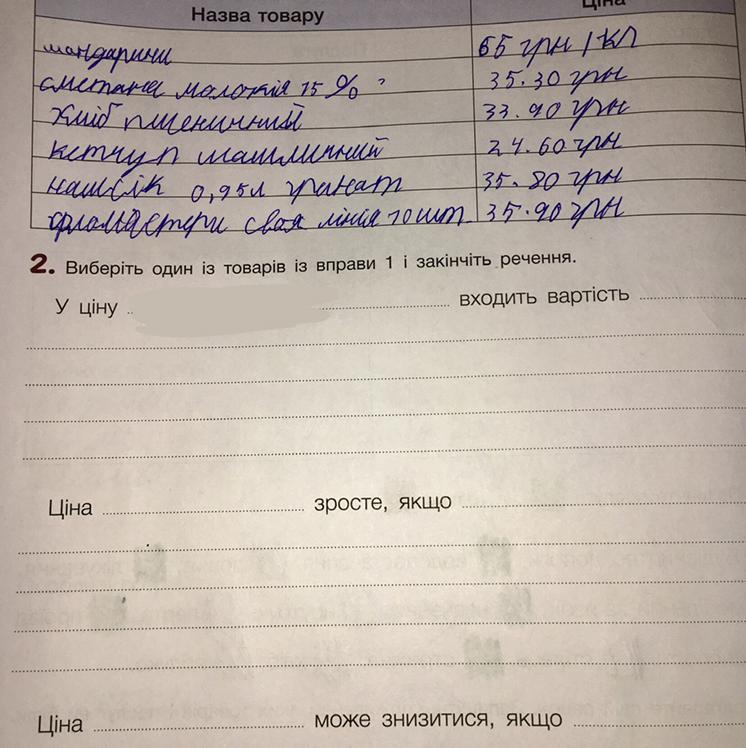 Назва товару Ціна
мандарини 65 грн / кг
сметана молокія 15 %
Хліб пшеничний 33.90 грн
кетчуп 24.60 грн
наш сік 0,95л гранат 35.80 грн
фломастери своя лінія 10 шт 35.90 грн
35.30 грн
2. Виберіть один із товарів із вправи 1 і закінчіть речення.
У ціну входить вартість
Ціна зросте, якщо
Ціна може знизитися, якщо